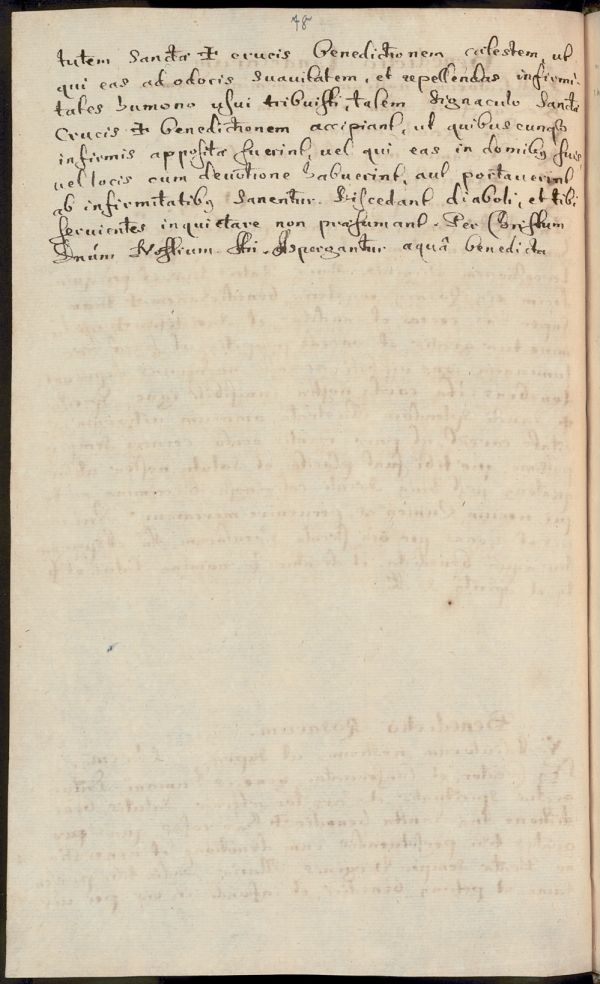 78
tutem Sanctæ ✠ crucis benedictionem cælestem, ut
qui eas ad odoris suauitatem, et repellendas infirmi-
tates humono usui tribuisti, talem signaculo Sanctæ
Crucis ✠ benedictionem accipiant, ut quibuscunqz
infirmis appositæ fuerint, uel qui eas in domibq suis
uel locis cum deuotione habuerint, aut portauerint
ab infirmitatibq Sanentur. Discedant diaboli, et tibi
seruientes inquietare non præsumant. Per Christum
Dnum Nostrum. Aspergantur aquâ benedicta